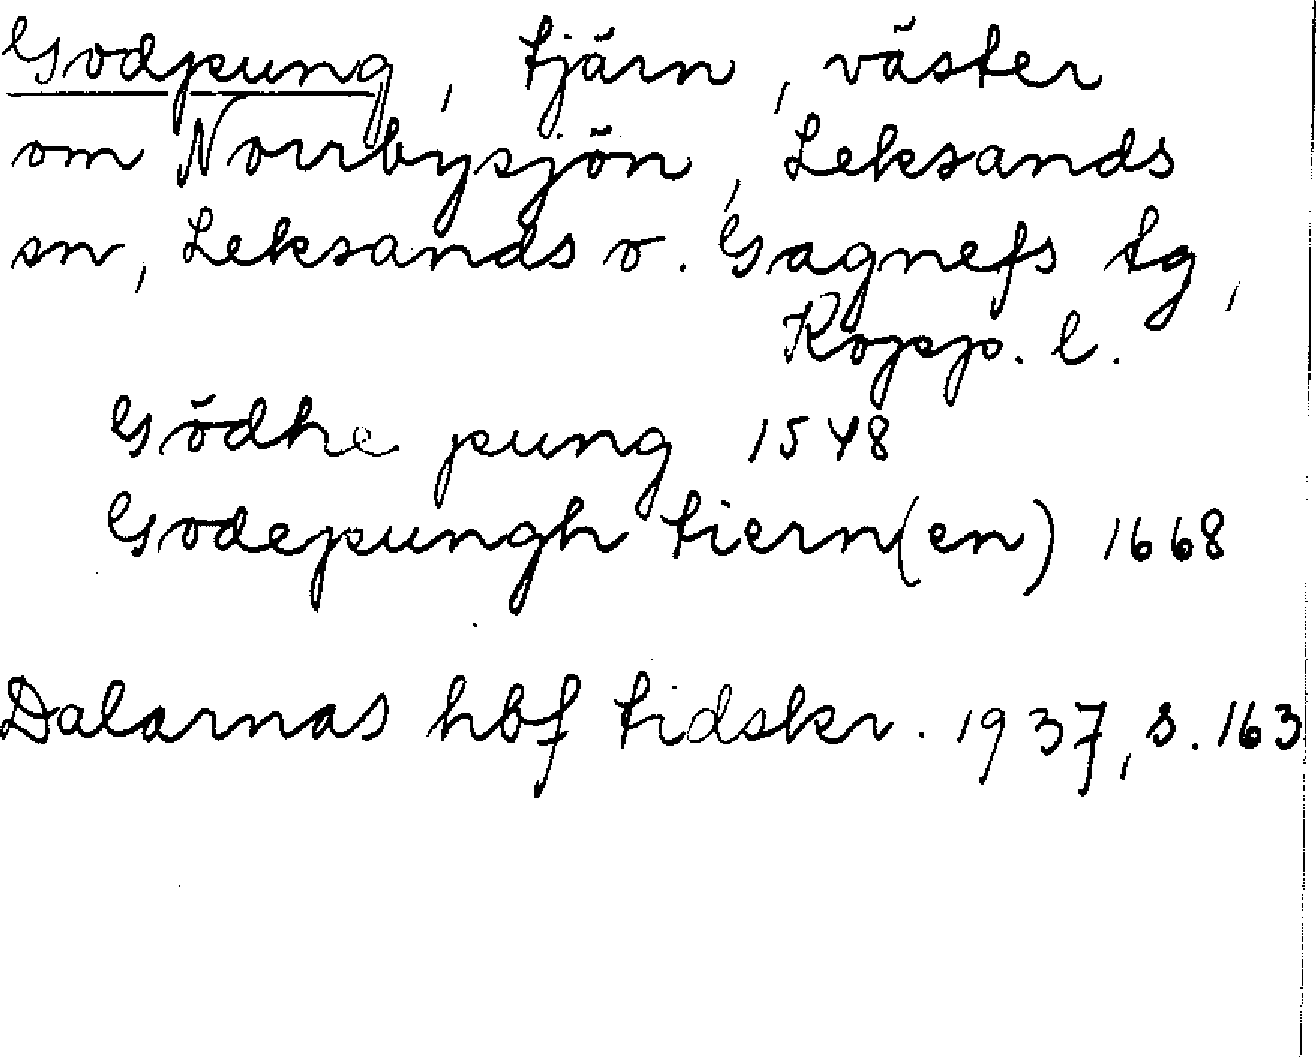 Godpung, tjärn, väster
om Norrbysjön, Leksands
sn, Leksands o. Gagnefs tg,
Kopp. l.
Gödhe pung 1548
Godepungh tiern(en) 1668
Dalarnas hbf tidskr. 1937, s. 163